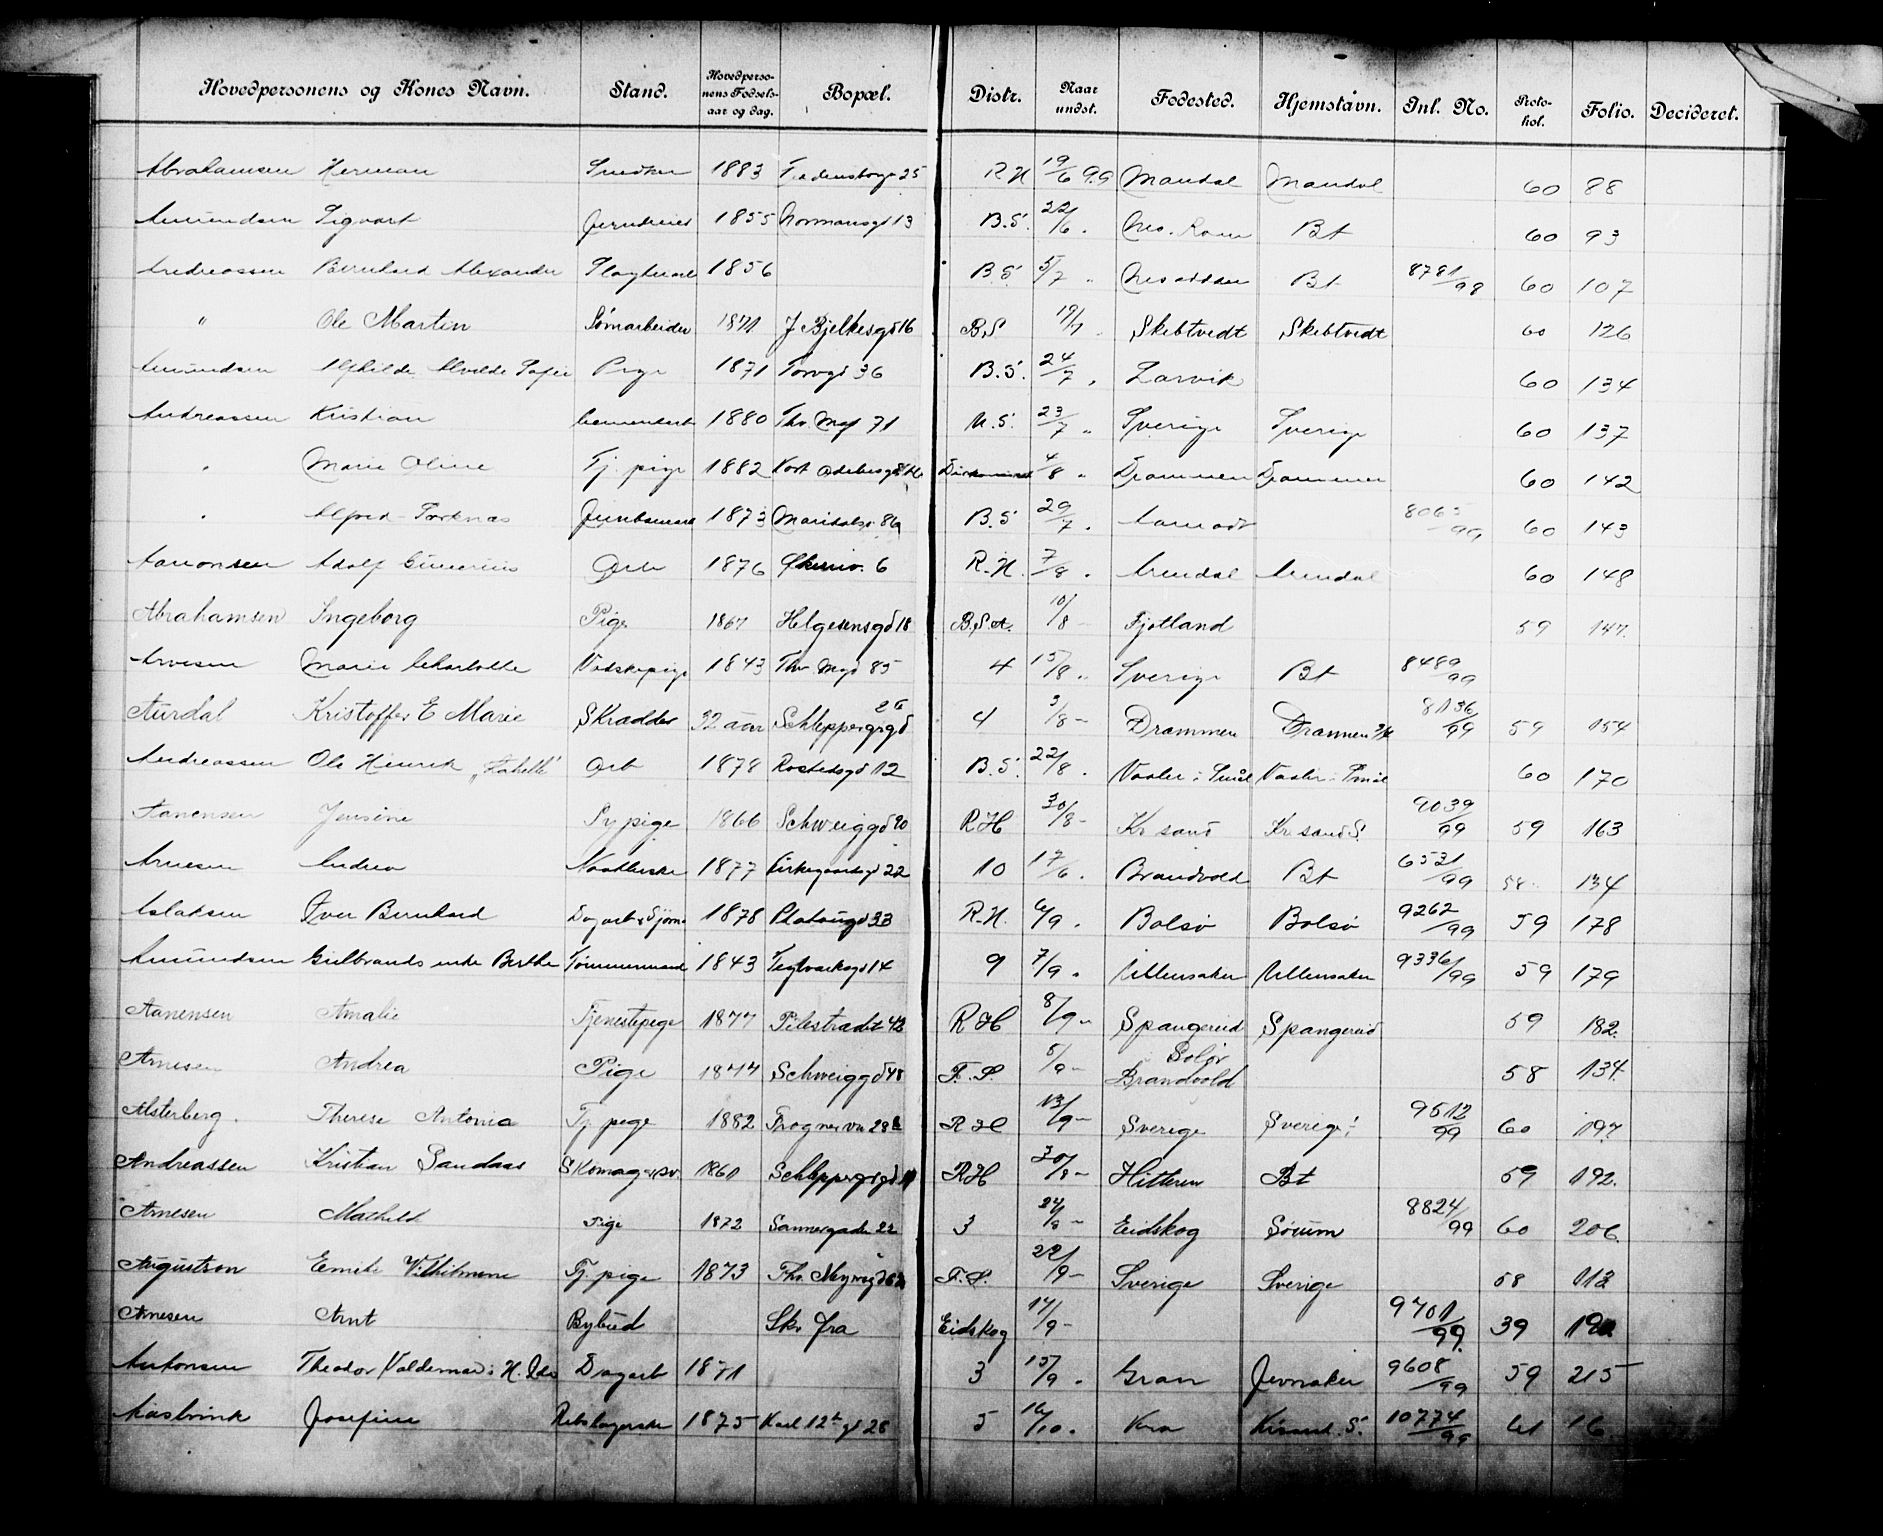 Hovedpersonens og Kones Navn. Stand. Hovedpersonens Fødselsaar og dag. Bopæl. Distr. Naar undst. Fødested. Hjemstavn. Inl. No. Protokol. Folio. Decideret.
Abrahamsen Herman Snedker 1883 25 R H 19/6 99 Mandal Mandal 60 88
Amundsen Sigvart 1855 Normansgd 13 B.S. 22/6 Bt 60 93
Andreassen Bernhard Alexander 1856 B.S. 5/7 " Nesodden Bt 8781/98 60 107
" Ole Martin Sømarbeider 1871 J Bjelkesgd 16 B.S 19/7 Skibtvedt Skibtvedt 60 126
Amundsen Alfhilde Alvilde Sofie Pige 1871 Torvgd 36 B.S. 24/7 Larvik 60 134
Andreassen Kristian 1880 Thv. Mgd 71 N.S. 23/7 " Sverige Sverige 60 137
" Marie Oline Tj. pige 1882 4/8 " Drammen Drammen 60 142
" Alfred 1873 Maridalsv. 86a B.S 29/7 8065/99 60 143
Aanonsen Adolf Gunerius Arb 1876 6 R.H. 7/8 Arendal Arendal 60 148
Abrahamsen Ingeborg Pige 1867 Helgesensgd 18 10/8 Fjotland 59 147.
Arvesen Marie Charlotte Vaskepige 1843 Thv. Mgd 85 4 15/8 " Sverige Bt 8489/99
Aurdal Kristoffer E Marie Skrædder 32 aar Schleppergrgd 4 3/8 Drammen Drammen 8136/99 59 154
Andreassen Ole Henrik Arb 1878 Rostedsgd 12 B.S. 22/8 Vaaler i Smål Vaaler i Smål 60 170
Aanensen Jensine pige 1866 Schweiggd 90 R H 30/8 Kr sand Kr sand S. 9039/99 59 163
Arnesen Andrea 1877 Kirkegaardsgd 22 10 17/6 Brandvold Bt 6521/99 58 134
Aslaksen Iver Bernhard Dagarb & Sjøm 1878 Platousgd 33 R.H. 6/9 Bolsø Bolsø 9262/99 59 178
Amundsen Gulbrands enke Berthe Tømmermand 1843 Teglverksgd 14 9 7/9 Ullensaker Ullensaker 9336/99 59 179
Aanensen Amalie Tjenestepige 1877 Pilestrædet 42 R H 8/9 Spangereid Spangereid 59 182.
Arnesen Andrea Pige 1877 Schweiggd 48 F. S. 5/9 Solør Brandvold 58 134.
Alsterberg. Therese Antonia Tj pige 1882 Frognervn 28 R H 13/9 Sverige Sverige 9512/99 60 197.
Andreassen Kristian Sandaas Skomagersv. 1861 Schleppegrgd R H 30/8 Hitteren Bt 59 192.
Arnesen Mathilde Pige 1872 Sannergaden 22 3 24/8 Eidskog Sørum 8824/99 60 206.
Augustson Emelie Vilhelmine Tj. pige 1873 Thv. Meyersgd F. S. 22/9 Sverige Sverige 58 112
Arnesen Arnt Bybud Skr fra Eidskog 14/9 9701/99. 39
Antonsen Theodor Valdemar Dagarb 1871 3 15/9 Gran Jevnaker 9608/99 59 215
Aasbrink Josefine 1875 Karl 12te gd 28 5 16/10 Kra Krsand. S. 10774/99 61 16.